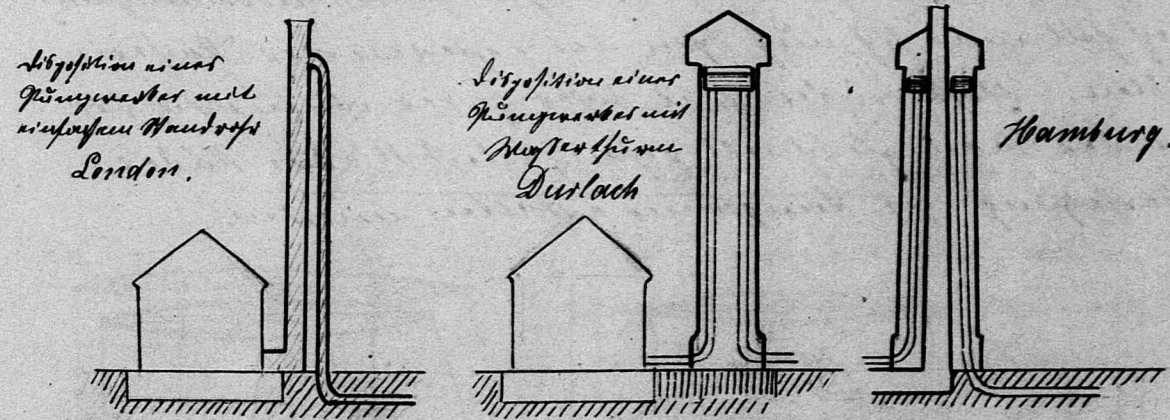 Disposition eines
Pumpwerkes mit
einfachem Standrohr
London.
Disposition eines
Pumpwerkes mit
Wasserthurm
Durlach
Hamburg.